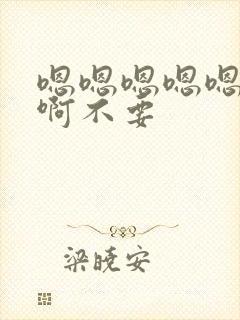 嗯嗯嗯嗯嗯
啊不要
梁晓安